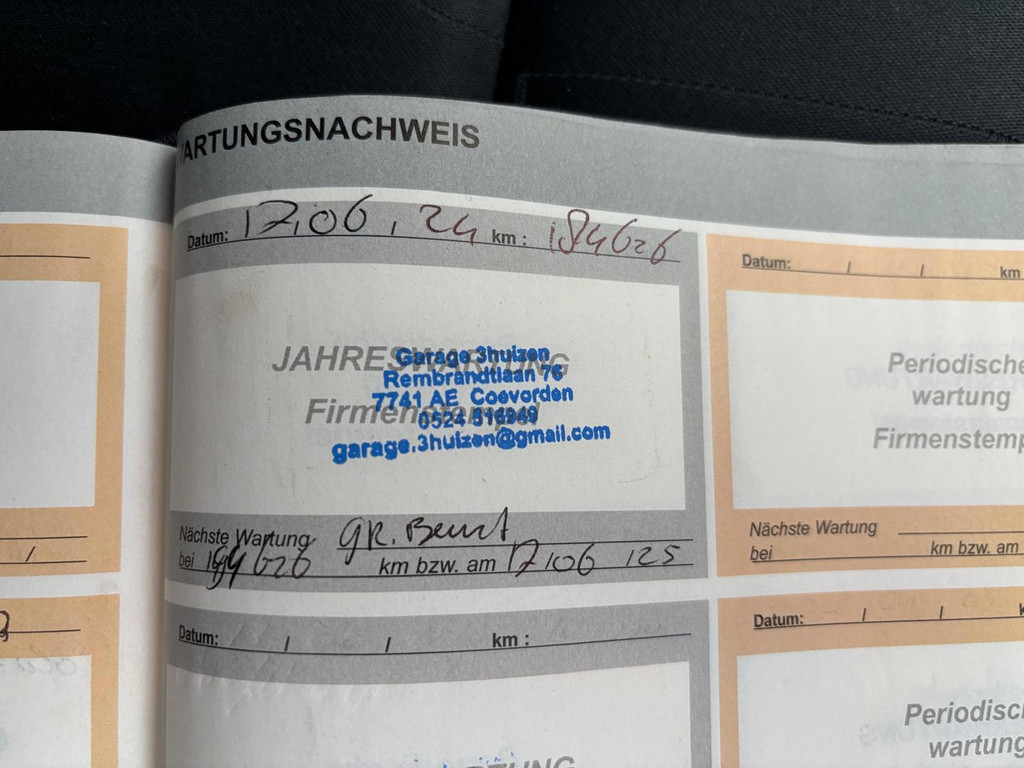 WARTUNGSNACHWEIS
Datum: 17.06.24 km : 184626
JAHRESWARTUNG
Firmenstempel
Garage 3huizen
Rembrandtlaan 76
7741 AE Coevorden
0524 516949
garage.3huizen@gmail.com
Nächste Wartung GR. Beurt
bei 194626 km bzw. am 17/06/25
Datum: / / km :
Datum: / / km
Periodische
wartung
Firmenstemp
Nächste Wartung
bei km bzw. am
Datum: / / k
Periodisc
wartung